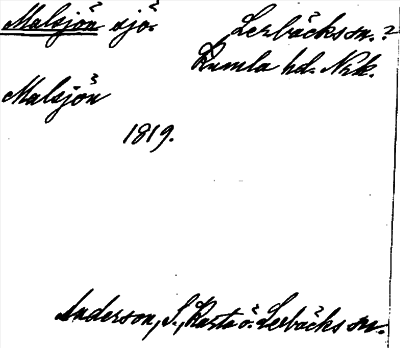 Malsjön sjö. Lerbäcks sn. 2
Kumla hd. Nrk.
Malsjön
1819.
Anderson, S., Karta ö. Lerbäcks sn.